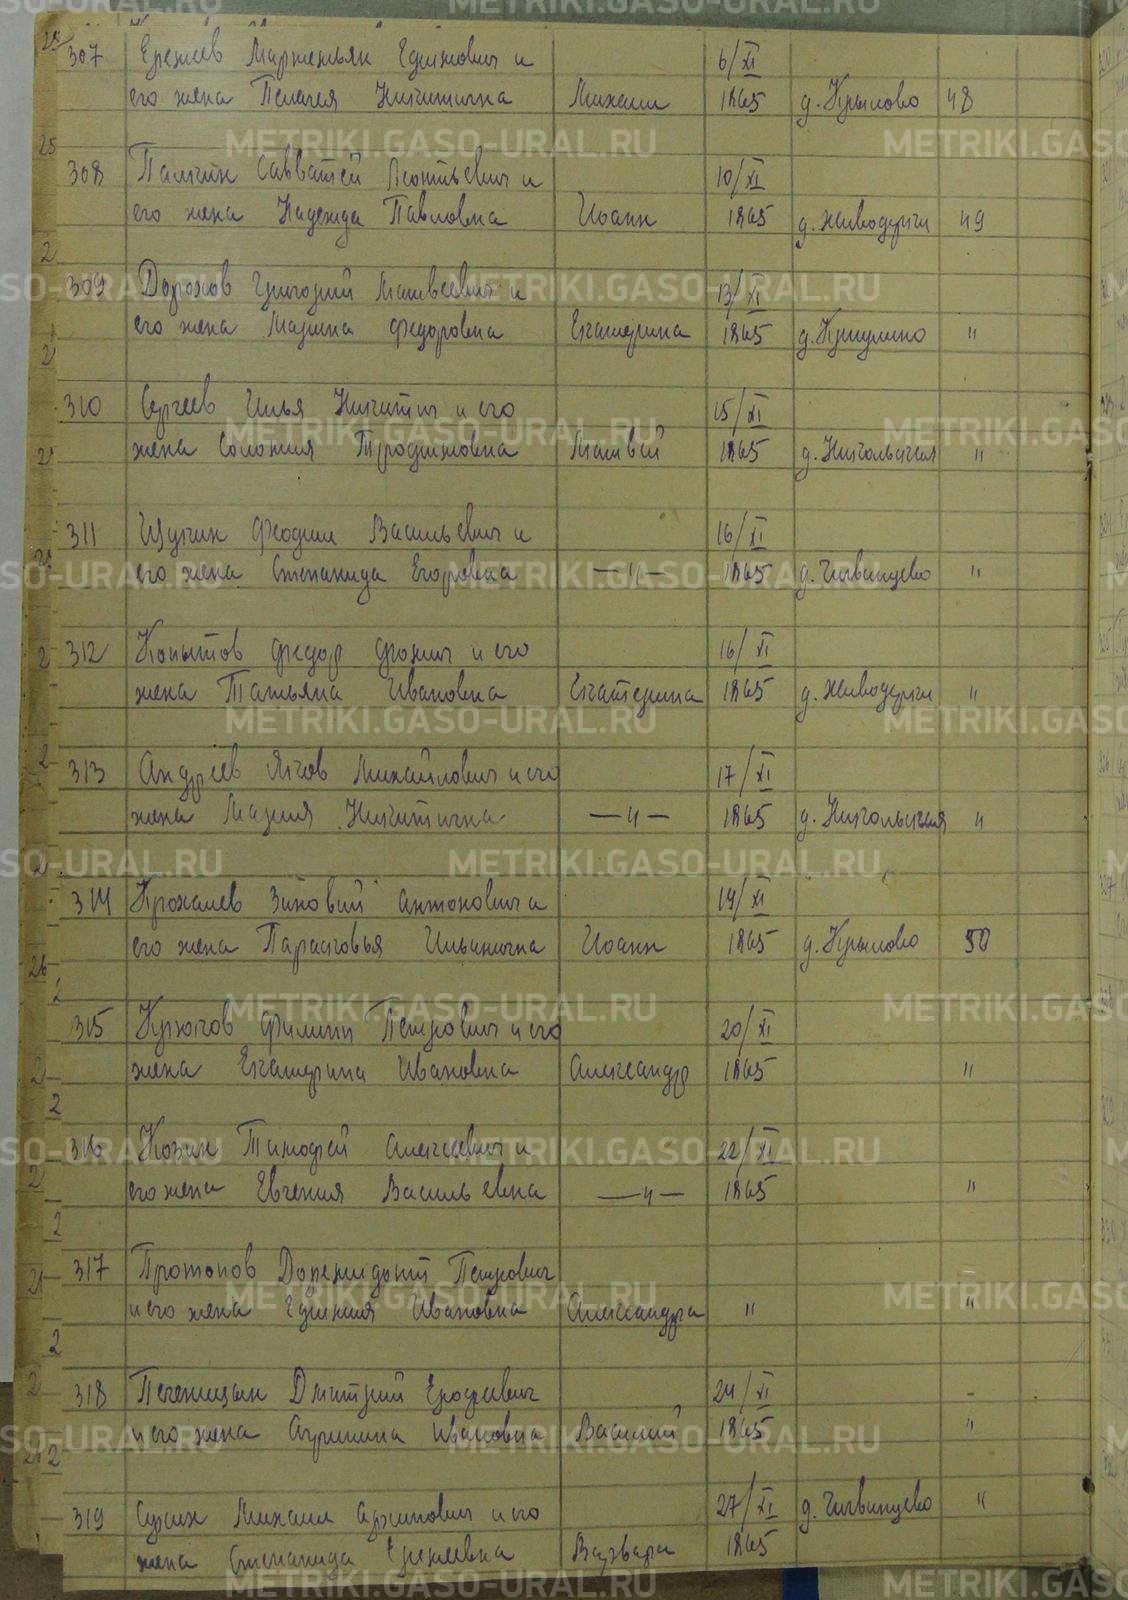 307 Еремеев Маркемьян Ефимович и 6/XI
его жена Пелагея Никитична Михаил 1865 д. Крылово 48
308 Палкин Савватей Леонтьевич и 10/XI
его жена Надежда Павловна Иоанн 1865 д. Живодерки 49
309 Дорохов Григорий Матвеевич и 13/XI
его жена Марина Федоровна Екатерина 1865 д. Криулино "
310 Сергеев Илья Никитич и его 15/XI
жена Соломия Трофимовна Матвей 1865 д. Никольская "
311 Щукин Феофил Васильевич и 16/XI
его жена Степанида Егоровна —"— 1865 д. Чигвинцево "
312 Копытов Федор Фомич и его 16/XI
жена Татьяна Ивановна Екатерина 1865 д. Живодерки "
313 Андреев Яков Михайлович и его 17/XI
жена Мария Никитична —"— 1865 д. Никольская "
314 Крохалев Зиновий Антонович и 19/XI
его жена Парасковья Ильинична Иоанн 1865 д. Крылово 50
315 Крюков Филипп Петрович и его 20/XI
жена Екатерина Ивановна Александр 1865 "
316 Козин Тимофей Алексеевич и 22/XI
его жена Евгения Васильевна —"— 1865 "
317 Протопов Петрович
и его жена Ефимия Ивановна Александра " "
318 Печеницын Дмитрий Ерофеевич 24/XI
и его жена Агрипина Ивановна Василий 1865 "
319 Михаил Архипович и его 27/XI д. Чигвинцево "
жена Степанида Еремеевна Варвара 1865
METRIKI.GASO-URAL.RU